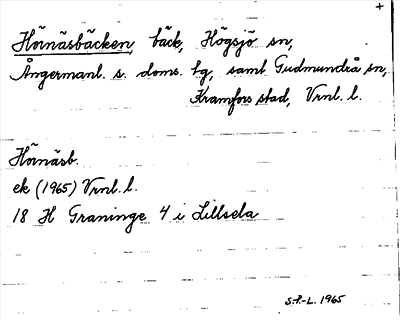 +
Hörnäsbäcken, bäck, Högsjö sn,
Ångermanl. s. doms. tg, samt Gudmundrå sn,
Kramfors stad, Vrnl. l.
Hörnäsb.
ek (1965) Vrnl. l.
18 H Graninge 4 i Lillsela
S.P.-L. 1965